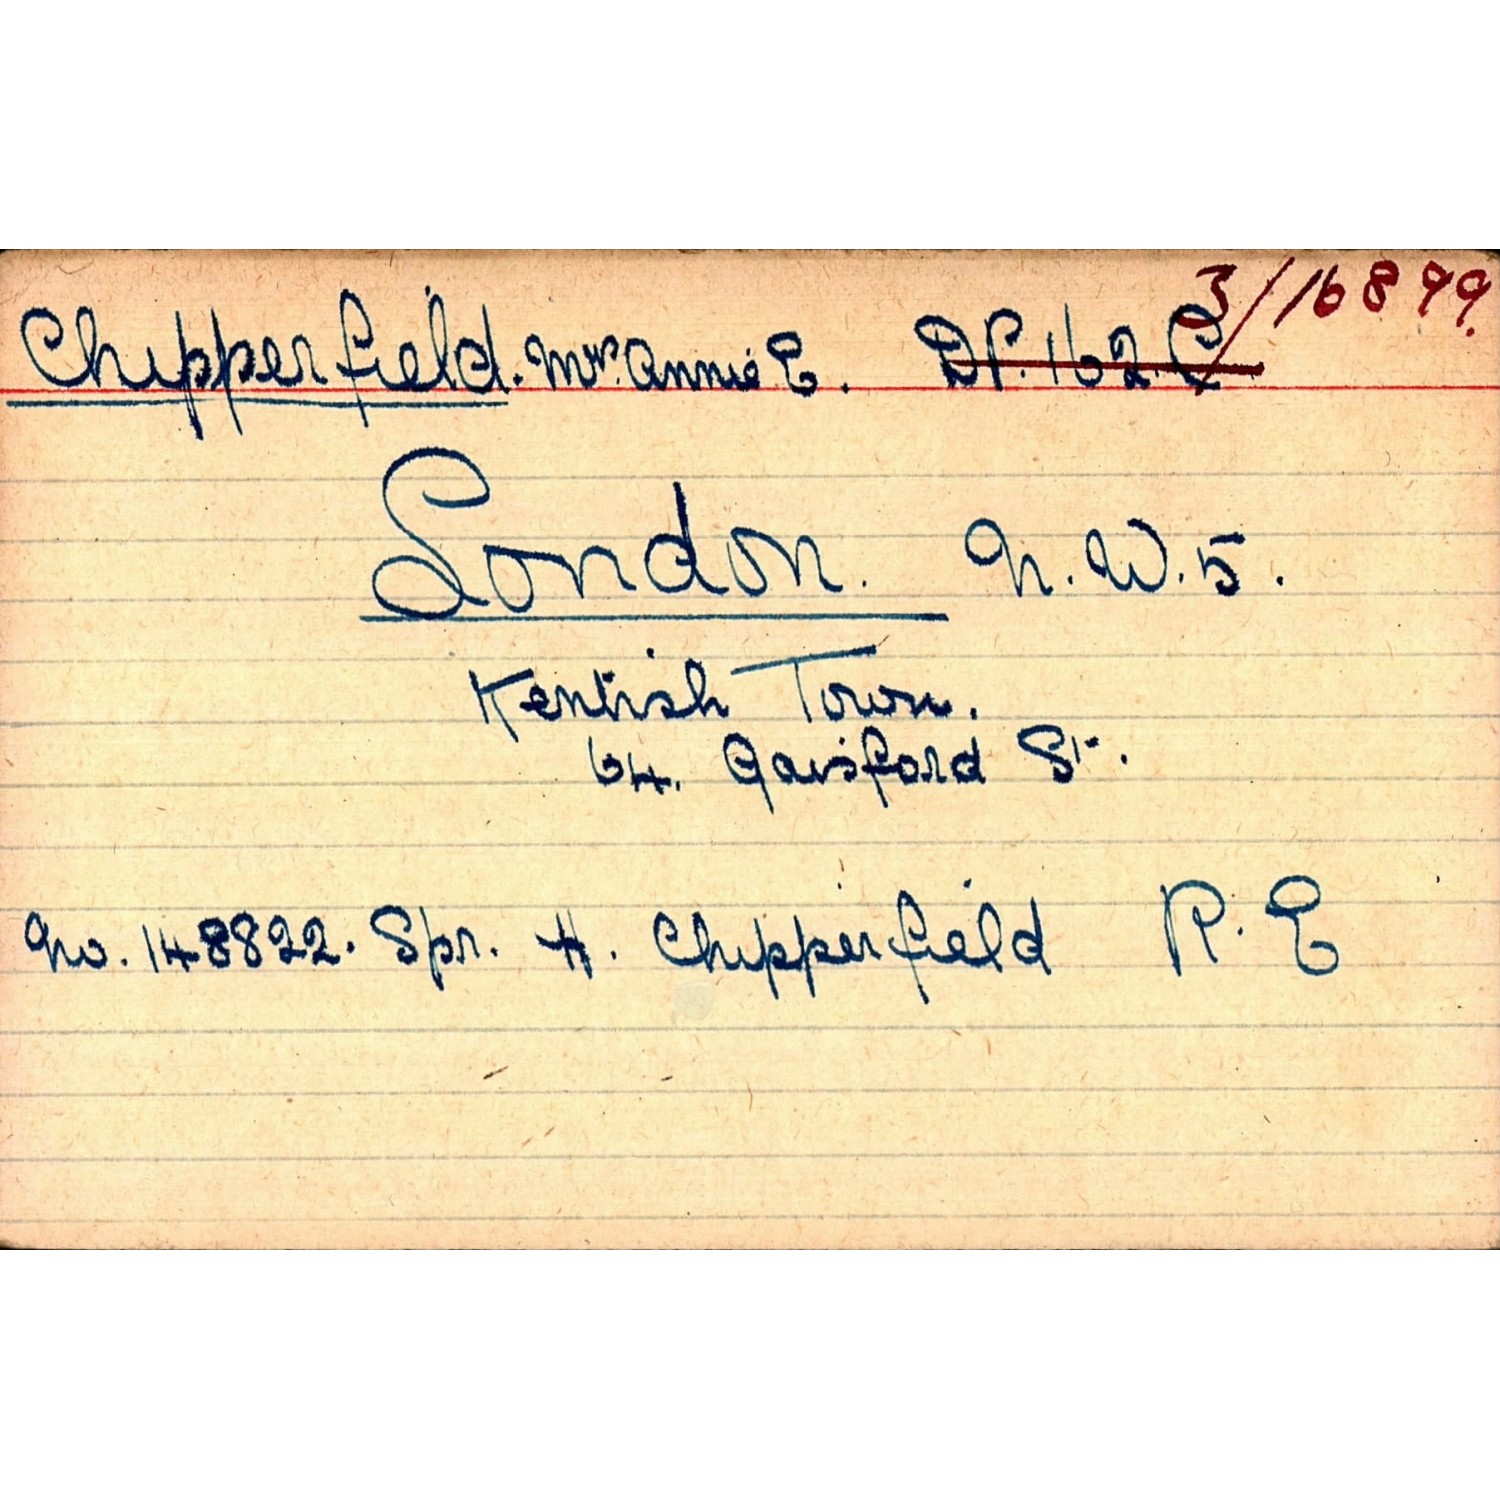 3/16899.
Chipperfield. Mrs. Annie E. DP. 162. C.
London. N.W.5.
Kentish Town.
64. Gaisford St.
No. 148822. Spr. H. Chipperfield R.E